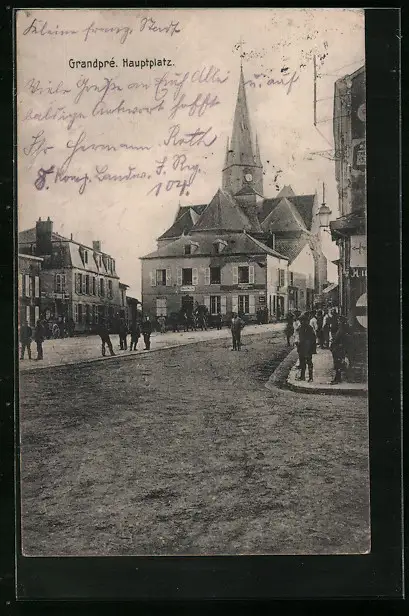 Kleine franz. Stadt
Grandpré. Hauptplatz.
Viele Grüße an Euch Alle u. auf
baldige Antwort hofft
Ihr Hermann Roth
8. Komp. Landw. I. Rg.
109.